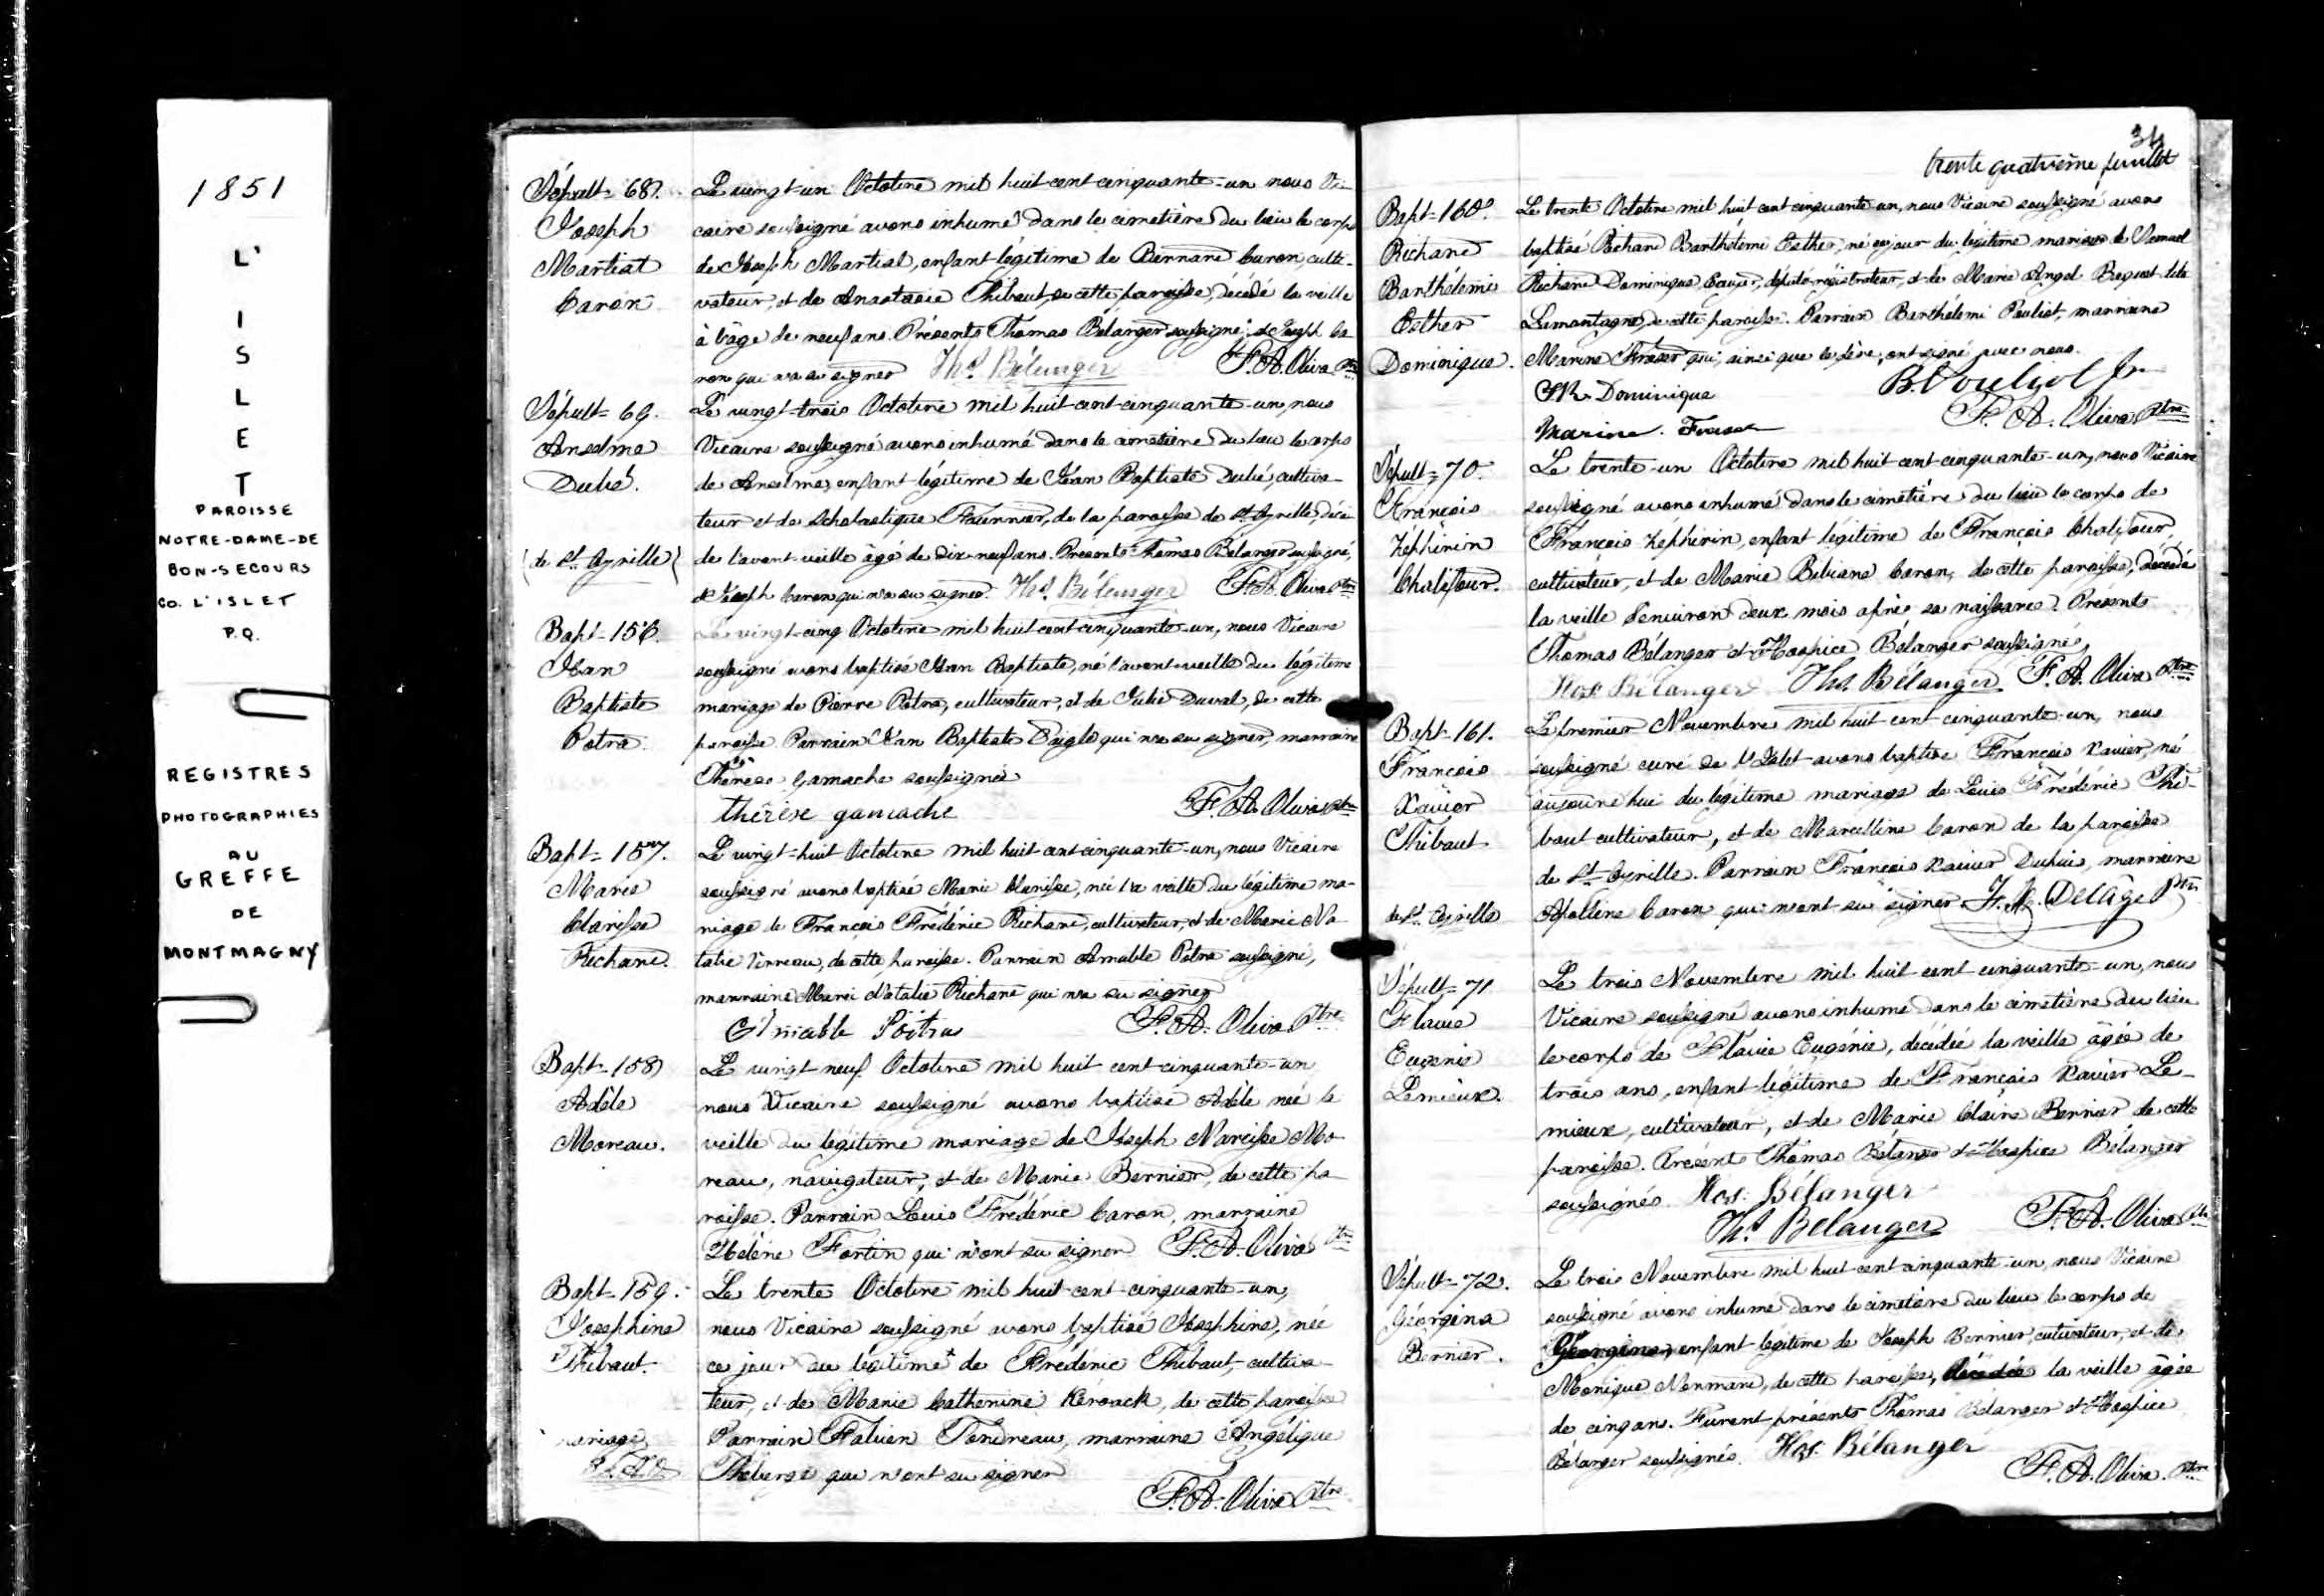 1851
L'
I
S
L
E
T
PAROISSE
NOTRE-DAME-DE
BON-SECOURS
CO. L'ISLET
P.Q.
REGISTRES
PHOTOGRAPHIES
AU
GREFFE
DE
MONTMAGNY
Sépult= 68.
Joseph
Martial
Caron
Le vingt-un Octobre mil huit cent cinquante-un nous Vi-
caire soussigné avons inhumé dans le cimetière du lieu le corps
de Joseph Martial, enfant légitime de Bernard Caron, culti-
vateur, et de Anastasie Thibaut, de cette paroisse, décédé la veille
à l'âge de neuf ans. Présents Thomas Bélanger soussigné, et Joseph Ca
ron qui n'a su signer Ths. Bélanger F. A. Oliva Ptre
Sépult= 69.
Anselme
Dubé.
(de St. Cyrille)
Le vingt-trois Octobre mil huit cent cinquante-un, nous
Vicaire soussigné avons inhumé dans le cimetière du lieu le corps
de Anselme, enfant légitime de Jean Baptiste Dubé, cultiva-
teur et de Scholastique Fournier, de la paroisse de St. Cyrille, décé-
dé l'avant-veille âgé de dix-neuf ans. Présents Thomas Bélanger soussigné,
et Joseph Caron qui n'a su signer. Ths. Bélanger F. A. Oliva Ptre
Bapt= 156.
Jean
Baptiste
Potra.
Le vingt-cinq Octobre mil huit cent cinquante-un, nous Vicaire
soussigné avons baptisé Jean Baptiste, né l'avant-veille du légitime
mariage de Pierre Potra, cultivateur, et de Julie Duval, de cette
paroisse. Parrain Jean Baptiste Daigle qui n'a su signer, marraine
Thérèse Gamache soussignée
thérèse gamache F. A. Oliva Ptre
Bapt= 157.
Marie
Clarisse
Richard.
Le vingt-huit Octobre mil huit cent cinquante-un, nous Vicaire
soussigné avons baptisé Marie Clarisse, née la veille du légitime ma-
riage de François Frédéric Richard, cultivateur, et de Marie Na
talie Verreau, de cette paroisse. Parrain Amable Potra soussigné,
marraine Marie Natalie Richard qui n'a su signer
Amable Pôitras F. A. Oliva Ptre
Bapt= 158
Adèle
Moreau.
Le vingt-neuf Octobre mil huit cent cinquante-un
nous Vicaire soussigné avons baptisé Adèle née la
veille du légitime mariage de Joseph Narcisse Mo-
reau, navigateur, et de Marie Bernier, de cette pa
roisse. Parrain Louis Frédéric Caron, marraine
Hélène Fortin qui n'ont su signer F. A. Oliva Ptre
Bapt= 159.
Josephine
Thibaut.
Le trente Octobre mil huit cent cinquante-un,
nous Vicaire soussigné avons baptisé Josephine, née
ce jour du légitime + de Frédéric Thibaut, cultiva-
teur, et de Marie Catherine Kérouack, de cette paroisse
mariage
F. A. O.
Parrain Fabien Tondreau, marraine Angélique
Théberge qui n'ont su signer
F. A. Oliva Ptre
34
trente quatrième feuillet
Bapt= 160.
Richard
Barthélemi
Esther
Dominique.
Le trente Octobre mil huit cent cinquante-un, nous Vicaire soussigné avons
baptisé Richard Barthélemi Esther, né ce jour du légitime mariage de Samuel
Richard Dominique, Ecuyer, député-régistrateur, et de Marie Angel
Lamontagne, de cette paroisse. Parrain Barthélemi Pouliot, marraine
Marine Fraser qui, ainsi que le père, ont signé avec nous.
S.R. Dominique B. Pouliot Jr
Marine Fraser F. A. Oliva Ptre
Sépult= 70.
François
Zéphirin
Chalifour.
Le trente-un Octobre mil huit cent cinquante-un, nous Vicaire
soussigné avons inhumé dans le cimetière du lieu le corps de
François Zéphirin, enfant légitime de François Chalifour,
cultivateur, et de Marie Bibiane Caron, de cette paroisse, décédé
la veille d'environ deux mois après sa naissance. Présents
Thomas Bélanger et Hospice Bélanger soussignés,
Hos. Bélanger Ths. Bélanger F. A. Oliva Ptre
Bapt= 161.
François
Xavier
Thibaut
de St. Cyrille
Le premier Novembre mil huit cent cinquante-un, nous
soussigné curé de l'Islet avons baptisé François Xavier, né
aujourd'hui du légitime mariage de Louis Frédéric Thi-
baut cultivateur, et de Marcelline Caron de la paroisse
de St. Cyrille. Parrain François Xavier Dupuis, marraine
Apolline Caron qui n'ont su signer. F. X. Delâge Ptre
Sépult= 71
Flavie
Eugénie
Lemieux.
Le trois Novembre mil huit cent cinquante-un, nous
Vicaire soussigné avons inhumé dans le cimetière du lieu
le corps de Flavie Eugénie, décédée la veille âgée de
trois ans, enfant légitime de François Xavier Le-
mieux, cultivateur, et de Marie Claire Bernier de cette
paroisse. Présents Thomas Bélanger et Hospice Bélanger
soussignés. Hos. Bélanger
Ths. Bélanger F. A. Oliva Ptre
Sépult= 72.
Géorgina
Bernier.
Le trois Novembre mil huit cent cinquante-un, nous Vicaire
soussigné avons inhumé dans le cimetière du lieu le corps de
Géorgina, enfant légitime de Joseph Bernier cultivateur, et de
Monique Normand, de cette paroisse, décédée la veille âgée
de cinq ans. Furent présents Thomas Bélanger et Hospice
Bélanger soussignés. Hos. Bélanger
F. A. Oliva. Ptre